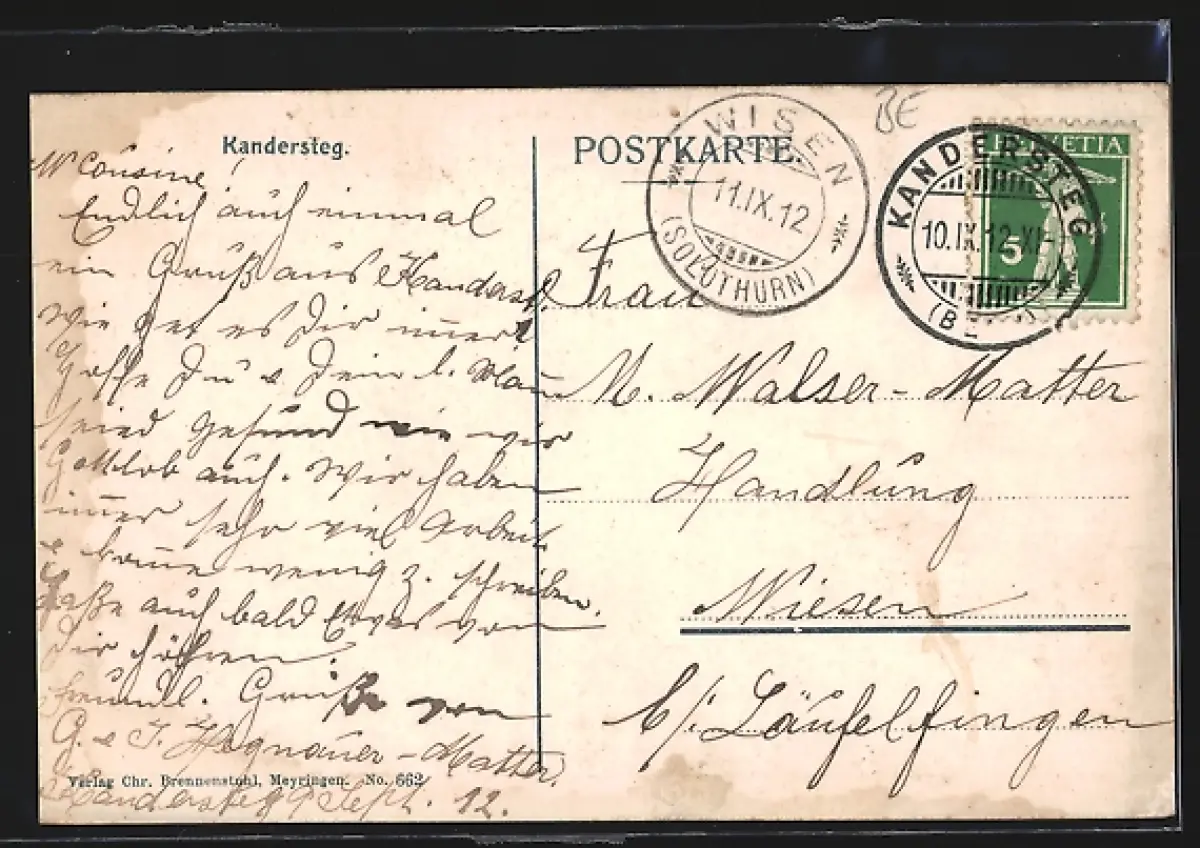 Kandersteg.
W Cousine!
Endlich auch einmal
ein Gruß aus Kanderst.
Wie get es Dir immer
Hoffe Du & Dein l. Mann
seied gesund wie wir
Gottlob auch. Wir haben
immer sehr viel Arbeit
& komme wenig z. schreiben.
Laße auch bald Etwas von
Dir höhren.
Freundl. Grüße von
G. & J. Hognauer-Matter,
Verlag Chr. Brennenstuhl, Meyringen. No. 662
Kandersteg 9 Sept. 12.
POSTKARTE.
BE
WISEN
11.IX.12
(SOLOTHURN)
KANDERSTEG
10.IX.12-XI-
HELVETIA
5
Frau
M. Walser-Matter
Handlung
Wiesen
b/: Läufelfingen